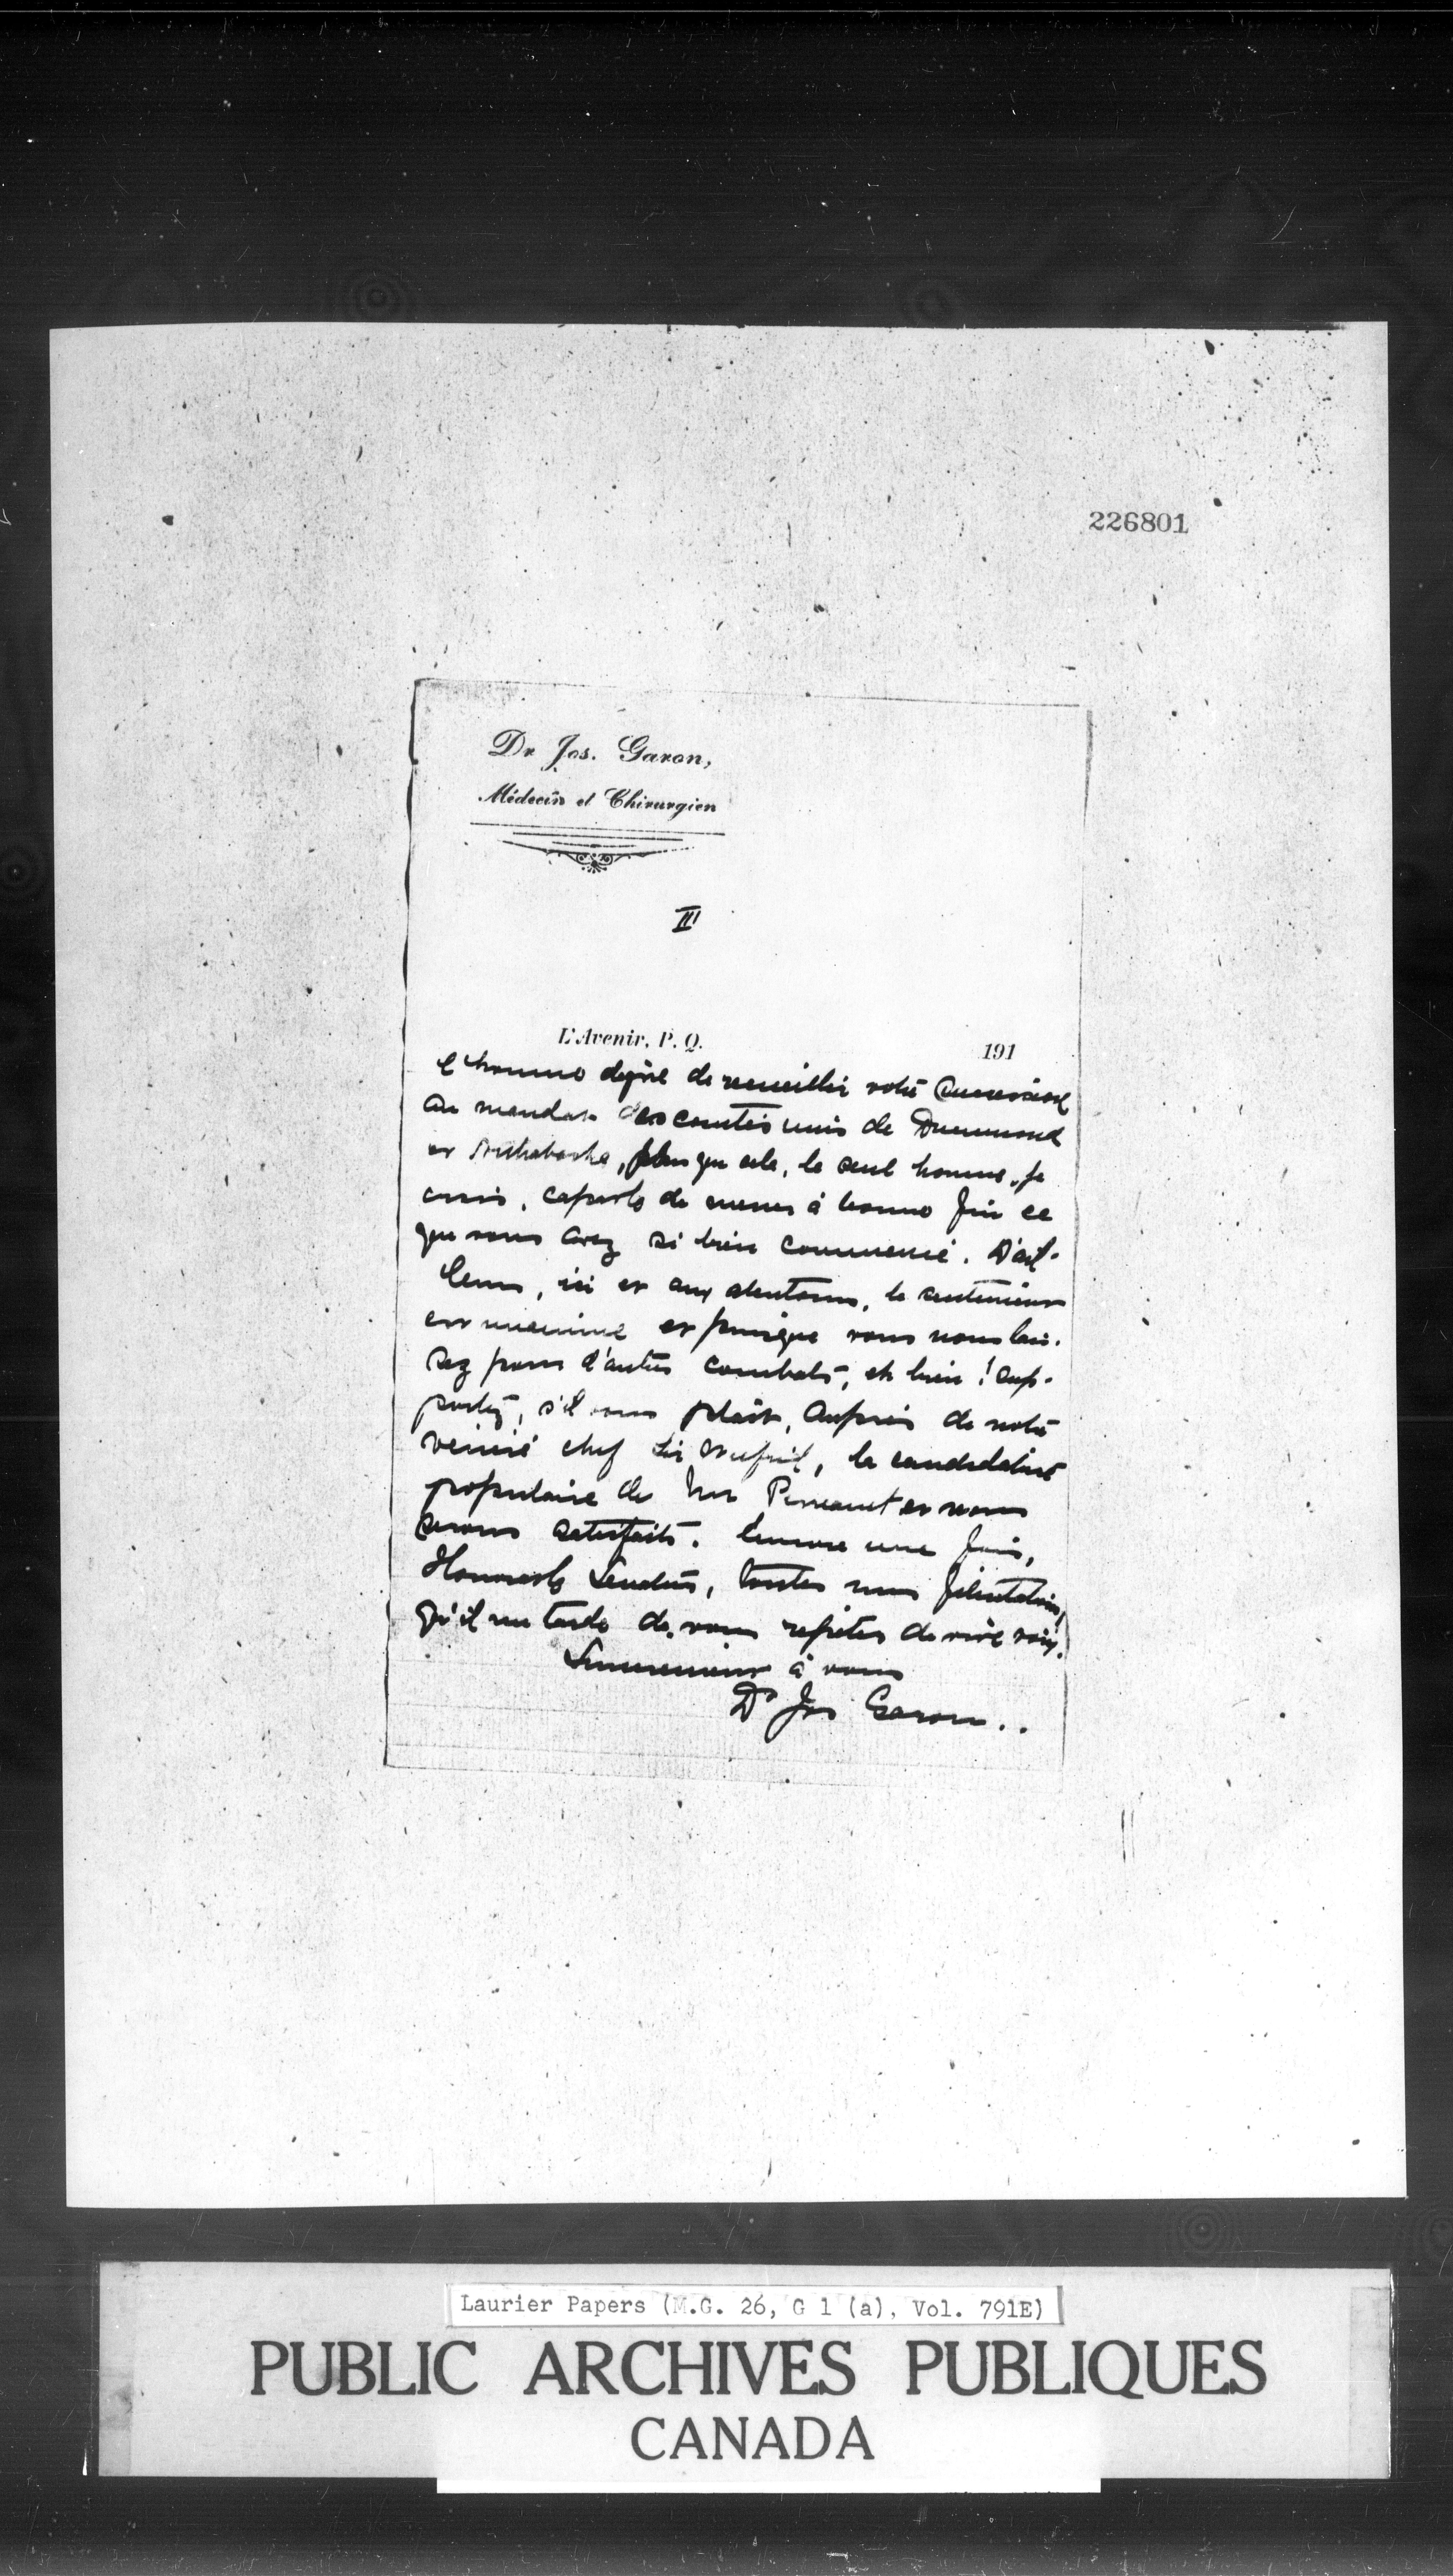 226801
Dr Jos. Garon,
Médecin et Chirurgien
III
L'Avenir, P. Q. 191
l'homme digne de recueillir votre succession
au mandat des comtés unis de Drummond
et Arthabaska, plus que cela, le seul homme, je
crois, capable de mener à bonne fin ce
que vous avez si bien commencé. D'ail-
leurs, ici et aux alentours, le sentiment
est unanime et puisque vous nous lais-
sez pour d'autres combats, eh bien! sup-
portez, s'il vous plait, auprès de notre
vénéré chef Sir Wilfrid, la candidature
populaire de Mr Perreault et nous
serons satisfaits. Encore une fois,
Honorable Sénateur, toutes nos félicitations,
qu'il me tarde de vous répéter de vive voix.
Sincèrement à vous
Dr Jos Garon..
Laurier Papers (M.G. 26, G 1 (a), Vol. 791E)
PUBLIC ARCHIVES PUBLIQUES
CANADA